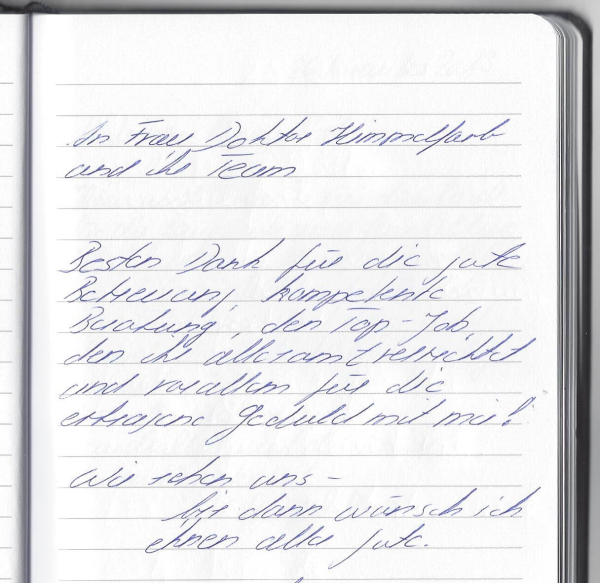 An Frau Doktor Himmelfarb
und ihr Team
Besten Dank für die gute
Betreuung, kompetente
Beratung, den Top-Job,
den ihr allesamt verrichtet
und vorallem für die
ertragene Geduld mit mir!
Wir sehen uns -
bis dann wünsch ich
ihnen alles Gute.